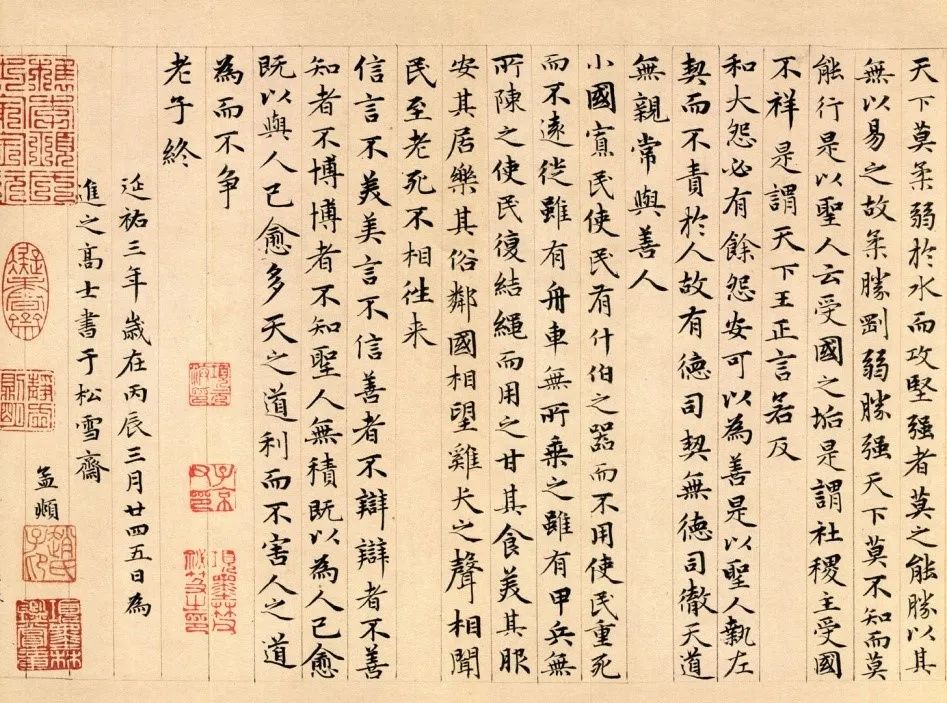 天下莫柔弱於水而攻堅强者莫之能勝以其
無以易之故柔勝剛弱勝强天下莫不知而莫
能行是以聖人云受國之垢是謂社稷主受國
不祥是謂天下王正言若反
和大怨必有餘怨安可以為善是以聖人執左
契而不責於人故有德司契無德司徹天道
無親常與善人
小國寡民使民有什伯之器而不用使民重死
而不遠徙雖有舟車無所乗之雖有甲兵無
所陳之使民復結繩而用之甘其食美其服
安其居樂其俗鄰國相望雞犬之聲相聞
民至老死不相往来
信言不美美言不信善者不辯辯者不善
知者不博博者不知聖人無積既以為人己愈
既以與人己愈多天之道利而不害人之道
為而不争
老子終
延祐三年歲在丙辰三月廿四五日為
進之高士書于松雪齋
孟頫
趙氏子昂